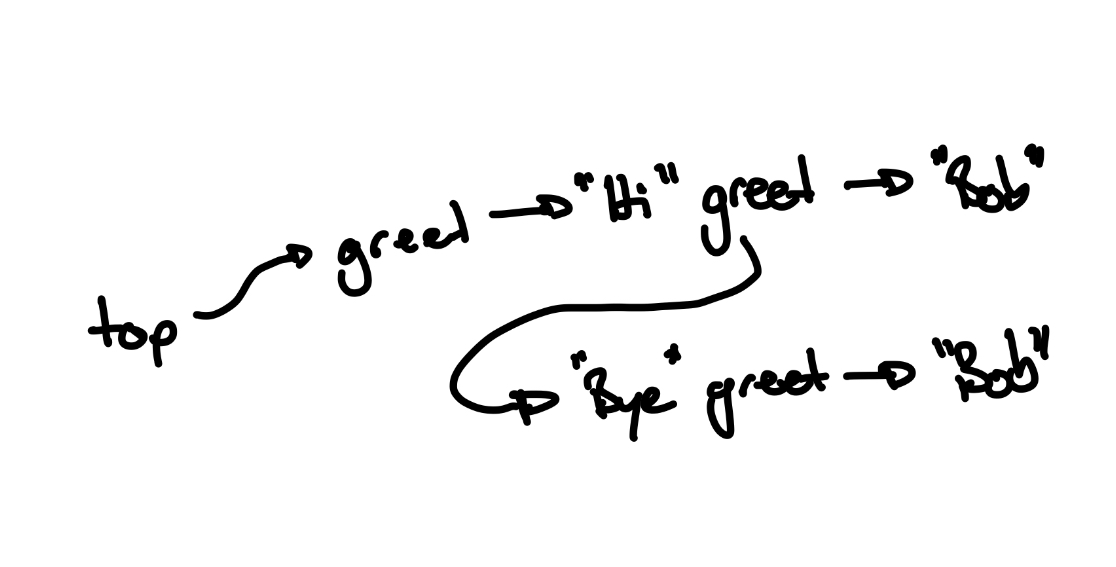 top
greet
"Hi" greet
"Bob"
"Bye" greet
"Bob"